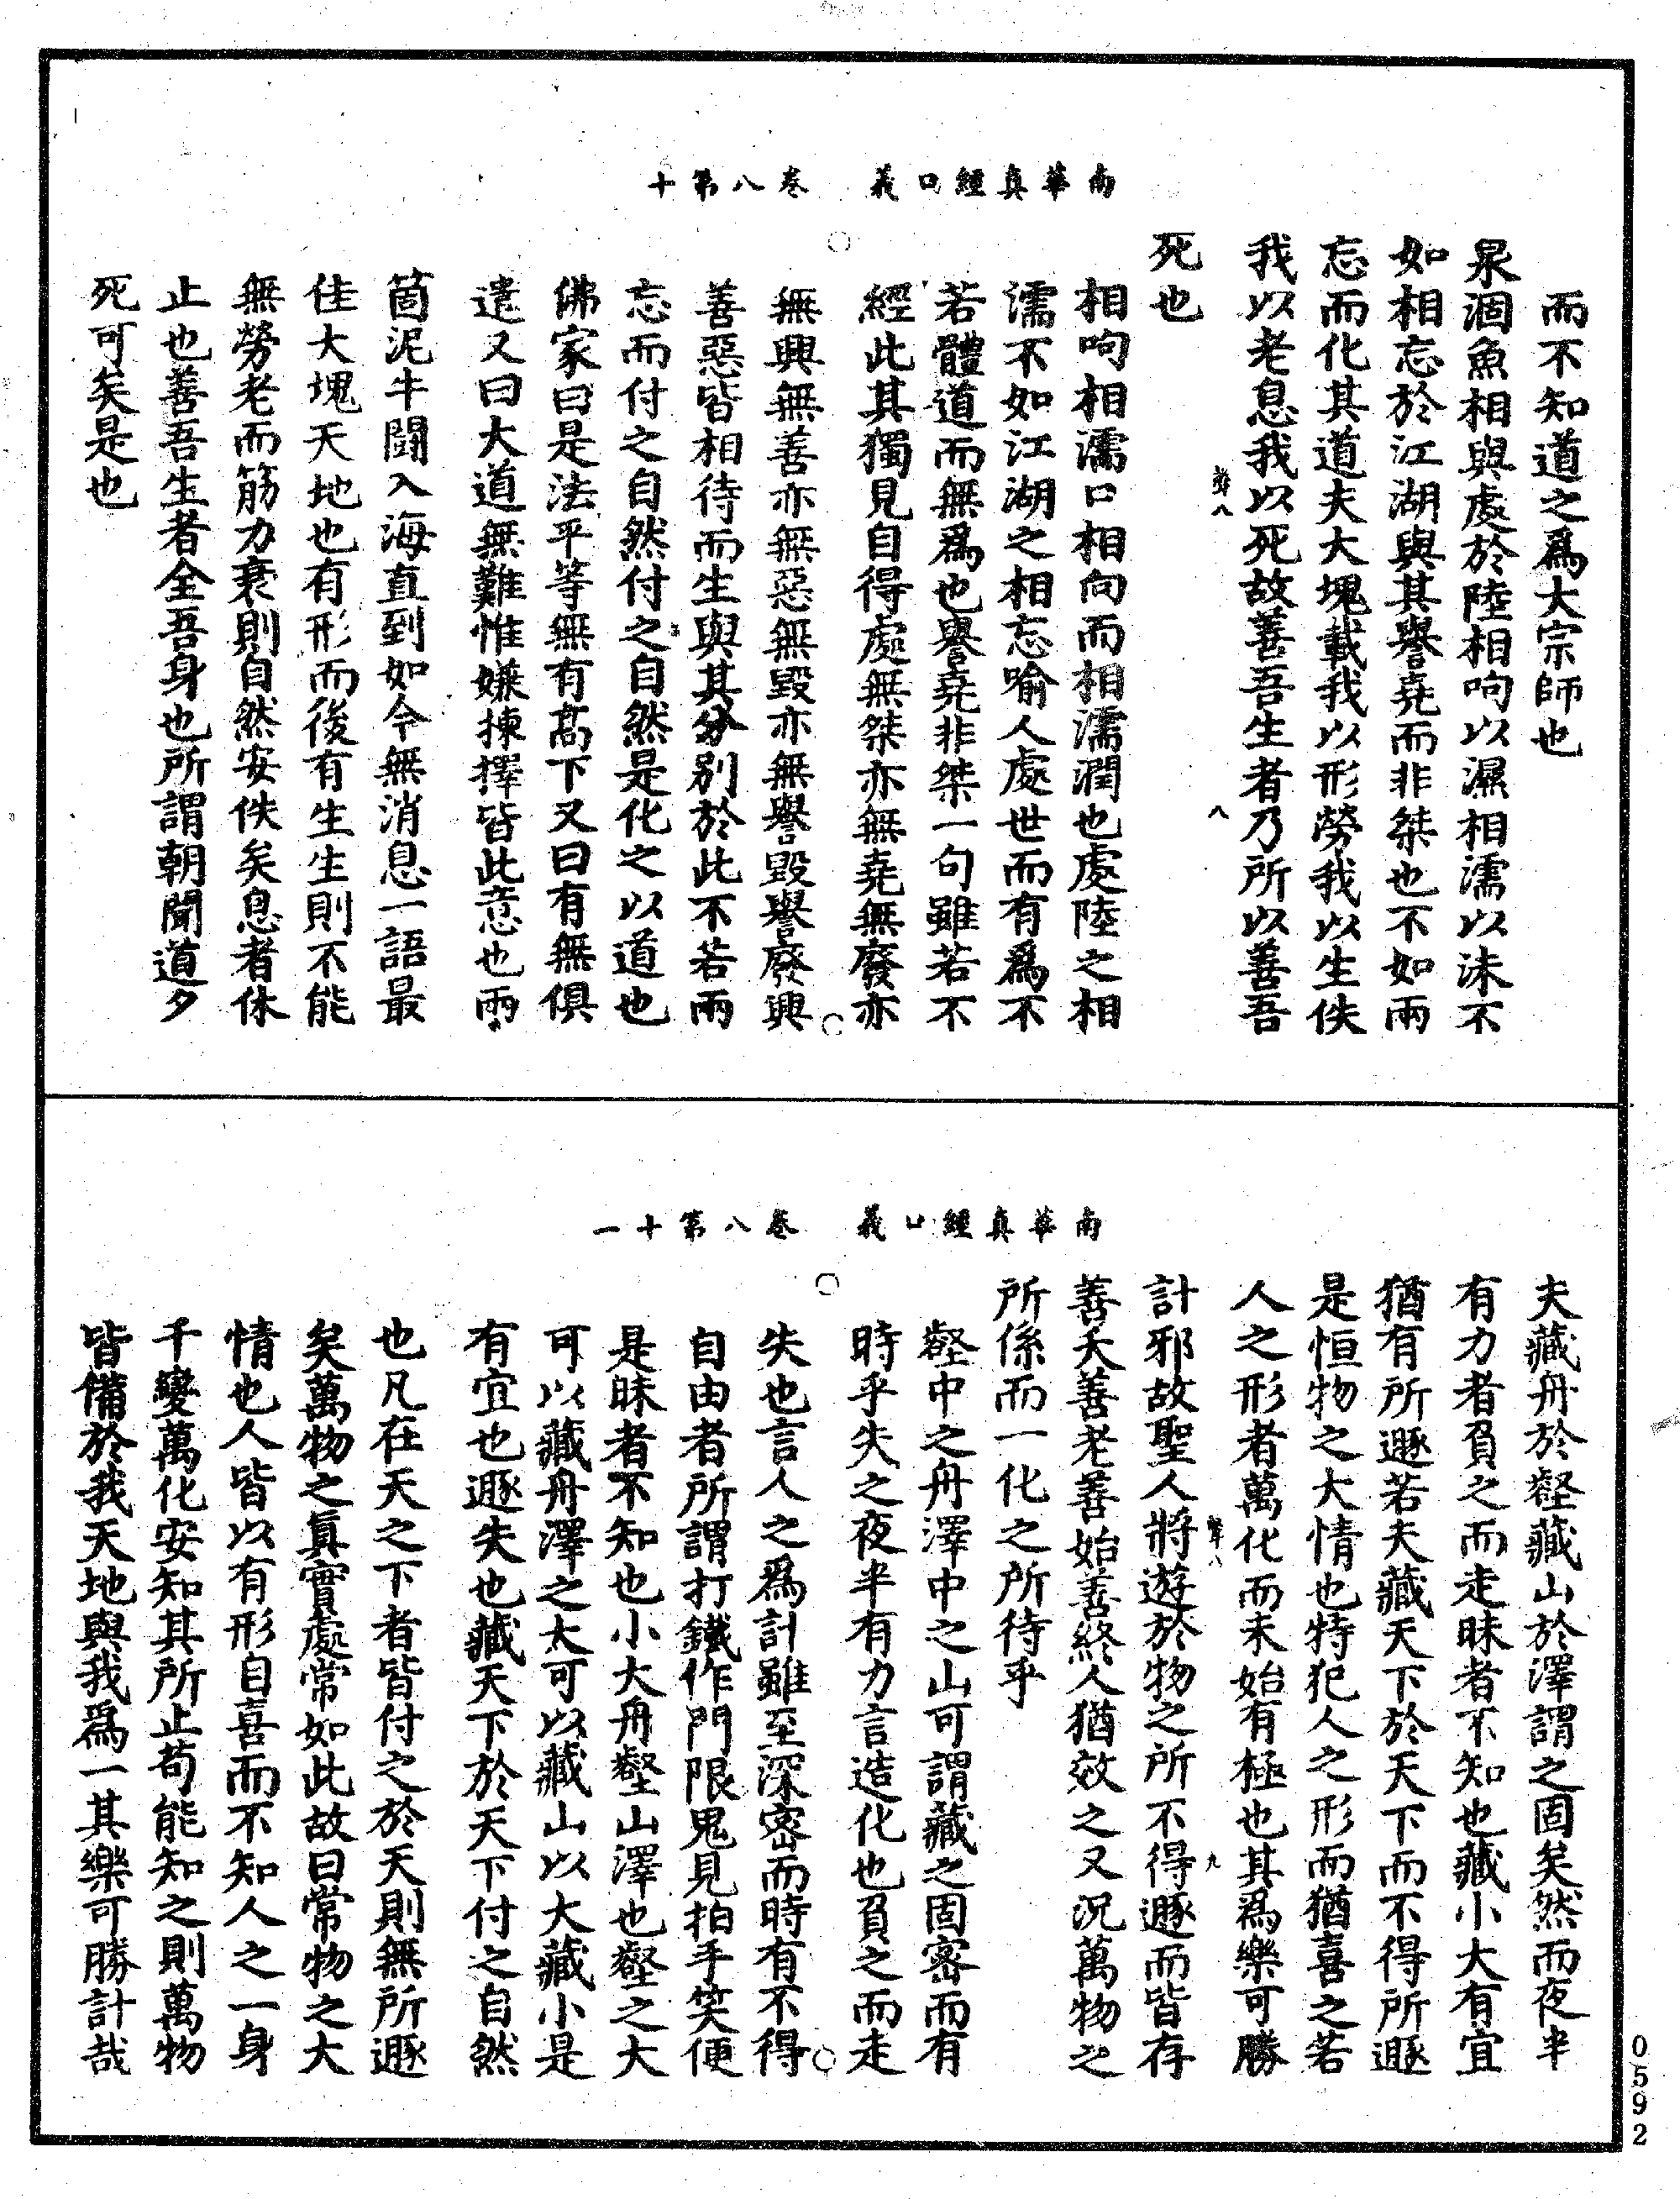 南華真經口義　卷八第十
而不知道之爲大宗師也
泉涸魚相與處於陸相呴以濕相濡以沫不
如相忘於江湖與其譽堯而非桀也不如兩
忘而化其道夫大塊載我以形勞我以生佚
我以老息我以死故善吾生者乃所以善吾
八
死也
相呴相濡口相向而相濡潤也處陸之相
濡不如江湖之相忘喻人處世而有爲不
若體道而無爲也譽堯非桀一句雖若不
經此其獨見自得處無桀亦無堯無廢亦
無興無善亦無惡無毀亦無譽毀譽廢興
善惡皆相待而生與其分別於此不若兩
忘而付之自然付之自然是化之以道也
佛家曰是法平等無有高下又曰有無俱
遣又曰大道無難惟嫌揀擇皆此意也兩
箇泥牛鬪入海直到如今無消息一語最
佳大塊天地也有形而後有生生則不能
無勞老而筋力衰則自然安佚矣息者休
止也善吾生者全吾身也所謂朝聞道夕
死可矣是也
南華真經口義　卷八第十一
夫藏舟於壑藏山於澤謂之固矣然而夜半
有力者負之而走昧者不知也藏小大有宜
猶有所遯若夫藏天下於天下而不得所遯
是恒物之大情也特犯人之形而猶喜之若
人之形者萬化而未始有極也其爲樂可勝
九
計邪故聖人將遊於物之所不得遯而皆存
善夭善老善始善終人猶效之又況萬物之
所係而一化之所待乎
壑中之舟澤中之山可謂藏之固密而有
時乎失之夜半有力言造化也負之而走
失也言人之爲計雖至深密而時有不得
自由者所謂打鐵作門限鬼見拍手笑便
是昧者不知也小大舟壑山澤也壑之大
可以藏舟澤之大可以藏山以大藏小是
有宜也遯失也藏天下於天下付之自然
也凡在天之下者皆付之於天則無所遯
矣萬物之真實處常如此故曰常物之大
情也人皆以有形自喜而不知人之一身
千變萬化安知其所止苟能知之則萬物
皆備於我天地與我爲一其樂可勝計哉
0592